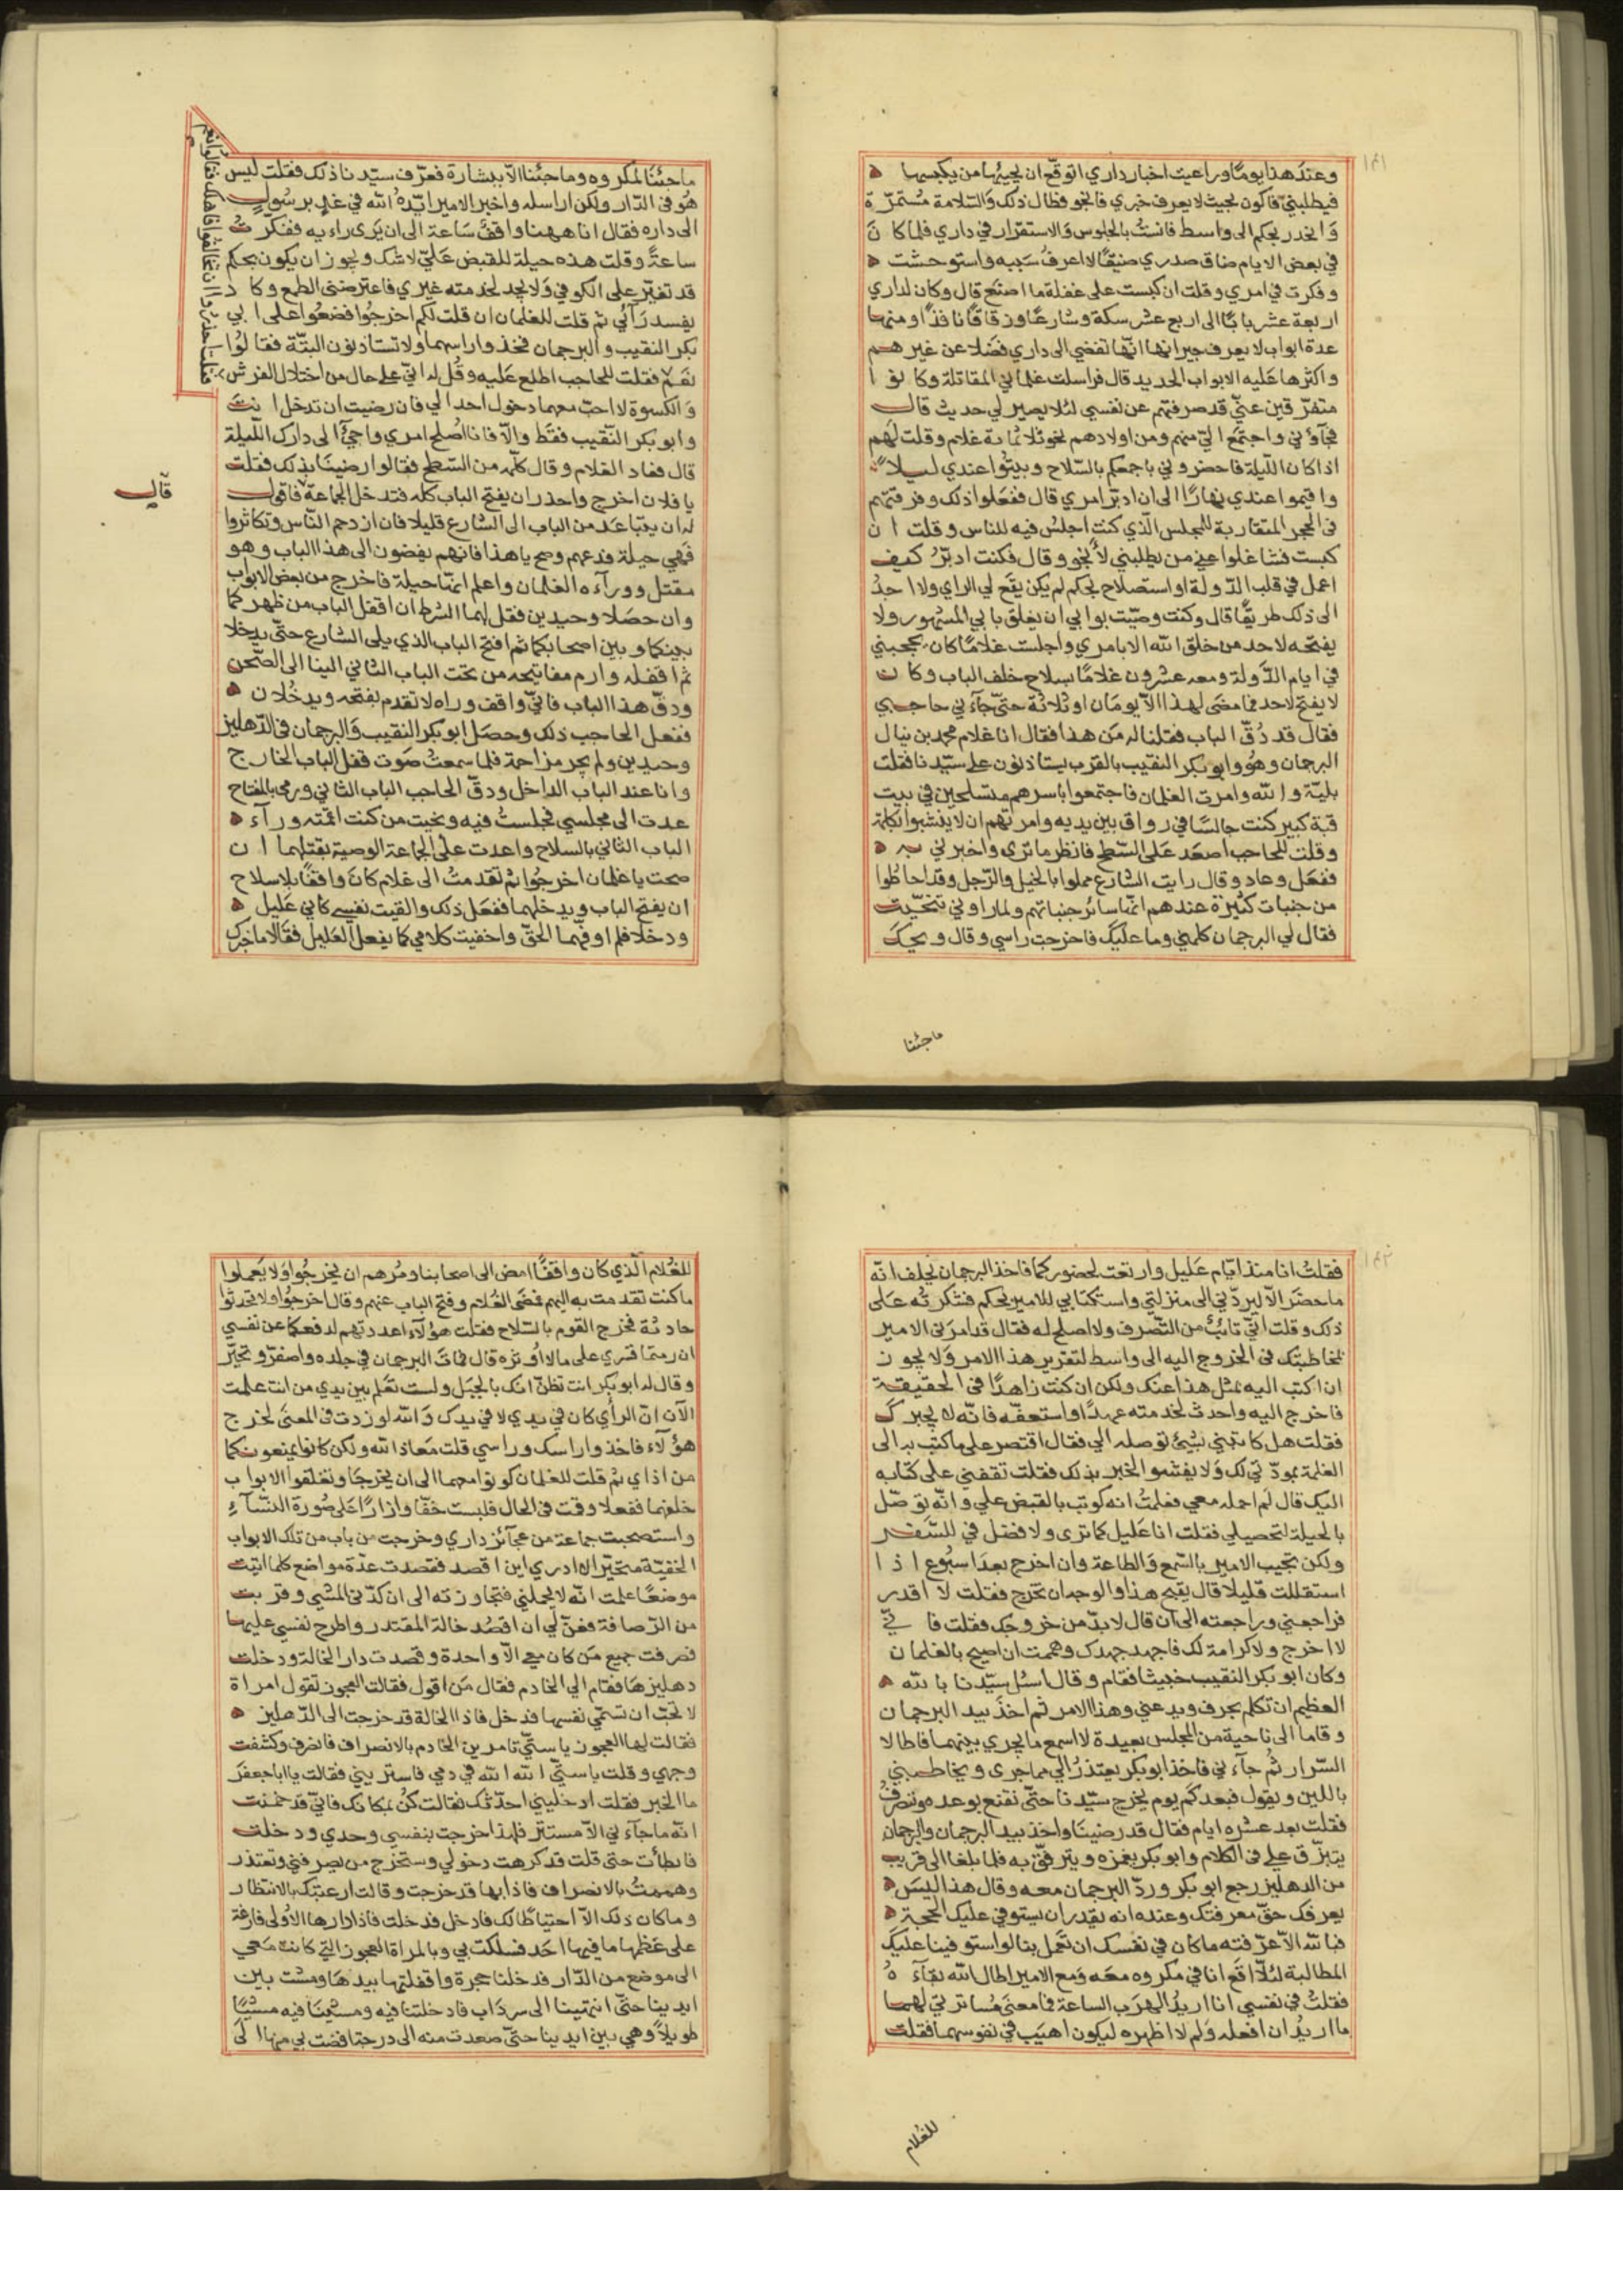 ١٤١
وعند هذا يوما وراعيت اخبار داري اتوقع ان يجيئها من يكبسها
فيطلبني فاكون بحيث لا يعرف خبري فانجو فطال ذلك والسلامة مستمرة
وانحدر بجكم الى واسط فانست بالجلوس والاستقرار في داري فلما كان
في بعض الايام ضاق صدري ضيقا لا اعرف سببه واستوحشت
وفكرت في امري وقلت ان كبست على غفلة ما اصنع قال وكان لداري
اربعة عشر بابا الى اربع عشر سكة وشارعا وزقاقا نافذا ومنها
عدة ابواب لا يعرف جيرانها انها تفضي الى داري فضلا عن غيرهم
واكثرها عليه الابواب الحديد قال فراسلت غلماني المقاتلة وكانوا
متفرقين عني قد صرفتهم عن نفسي لئلا يصير لي حديث قال
فجآؤني واجتمع الي منهم ومن اولادهم نحو ثلاثماية غلام وقلت لهم
اذا كان الليلة فاحضروني باجمعكم بالسلاح وبيتوا عندي ليلا
واقيموا عندي نهارا الى ان ادبر امري قال ففعلوا ذلك وفرقتهم
في الحجر المتقاربة للمجلس الذي كنت اجلس فيه للناس وقلت ان
كبست فشاغلوا عني من يطلبني لأنجو وقال فكنت ادبر كيف
اعمل في قلب الدولة او استصلاح بجكم لم يكن يقع لي الراي ولا احد
الى ذلك طريقا قال وكنت وصيت بوابي ان يغلق بابي المشهور ولا
يفتحه لاحد من خلق الله الا بامري واجلست غلاما كان يحجبني
في ايام الدولة ومعه عشرون غلاما بسلاح خلف الباب وكان
لا يفتح لاحد فما مضى لهذا الا يومان او ثلاثة حتى جآءني حاجبي
فقال قد دق الباب فقلنا له من هذا فقال انا غلام محمد بن نيال
الترجمان وهو وابو بكر النقيب بالقرب يستاذنون على سيدنا فقلت
بلية والله وامرت الغلمان فاجتمعوا باسرهم متسلحين في بيت
قبة كبير كنت جالسا في رواق بين يديه وامرتهم ان لا ينبسوا بكلمة
وقلت للحاجب اصعد على السطح فانظر ما ترى واخبرني به
ففعل وعاد وقال رايت الشارع مملوا بالخيل والرجل وقد احاطوا
من جنبات كثيرة عندهم انها سائر جنباتهم ولما راوني تنحيت
فقال لي الترجمان كلمني وما عليك فاخرجت راسي وقال ويحك
ماجئنا
ماجئنا لمكروه وما جئنا الا ببشارة فعرف سيدنا ذلك فقلت ليس
هو في الدار ولكن اراسله واخبر الامير ايده الله في غد برسول
الى داره فقال انا ههنا واقف ساعة الى ان يرى راءيه ففكرت
ساعة وقلت هذه حيلة للقبض علي لا شك ويجوز ان يكون بجكم
قد تغير على الكوفي ولا يجد لخدمته غيري فاعترضني الطمع وكاد
يفسد رائي ثم قلت للغلمان ان قلت لكم اخرجوا فضعوا على ابي
بكر النقيب والترجمان فخذوا راسهما ولا تستاذنون البتة فقالوا
نعم فقلت للحاجب اطلع عليه وقل له اني على حال من اختلال الفرش
والكسوة لا احب معهما دخول احد الي فان رضيت ان تدخل انت
وابو بكر النقيب فقط والا فانا اصلح امري واجئ الى دارك الليلة
قال فعاد الغلام وقال كلمه من السطح فقالوا رضينا بذلك فقلت
يا فلان اخرج واحذر ان يفتح الباب كله فتدخل الجماعة فاقول
له ان يتباعد من الباب الى الشارع قليلا فان ازدحم الناس وتكاثروا
فهي حيلة فدعهم وصح يا هذا فانهم يفضون الى هذا الباب وهو
مقتل وورآءه الغلمان واعلم انها حيلة فاخرج من بعض الابواب
وان حصلا وحيدين فقل لهما الشرط ان اقفل الباب من ظهركما
بينكما وبين اصحابكما ثم افتح الباب الذي يلي الشارع حتى يدخلا
ثم اقفله وارم مفاتيحه من تحت الباب الثاني الينا الى الصحن
ودق هذا الباب فاني واقف وراه لا تقدم بفتحه ويدخلان
ففعل الحاجب ذلك وحصل ابو بكر النقيب والترجمان في الدهليز
وحيدين ولم يجر مزاحمة فلما سمعت صوت قفل الباب الخارج
وانا عند الباب الداخل ودق الحاجب الباب الثاني ورمى بالمفتاح
عدت الى مجلسي فجلست فيه ونحيت من كنت اقمته ورآء
الباب الثاني بالسلاح واعدت على الجماعة الوصية بقتلهما ان
صحت يا غلمان اخرجوا ثم تقدمت الى غلام كان واقفا بلا سلاح
ان يفتح الباب ويدخلهما ففعل ذلك والقيت نفسي كاني عليل
ودخلا فلم اوفهما الحق واخفيت كلامي كما يفعل العليل فقالا ما خبرك
فقلت احذروا ان تخالفوا في هذا فقالوا نعم
قال
١٤٢
فقلت انا منذ ايام عليل وارتعت لحضوركما فاخذ الترجمان يحلف انه
ما حضر الا ليردني الى منزلتي واستكتابي للامير بجكم فشكرته على
ذلك وقلت اني تائب من التصرف ولا اصلح له فقال قد امرني الامير
بمخاطبتك في الخروج اليه الى واسط لتقرير هذا الامر ولا يجوز
ان اكتب اليه بمثل هذا عنك ولكن ان كنت زاهدا في الحقيقة
فاخرج اليه واحدث لخدمته عهدا واستعفه فانه لا يجبرك
فقلت هل كاتبني بشيئ توصله الي فقال اقتصر على ما كتب به الي
لعلمه بمودتي لك ولا يفشو الخبر بذلك فقلت تقفني على كتابه
اليك قال لم احمله معي فعلمت انه كوتب بالقبض علي وانه توصل
بالحيلة لتحصيلي فقلت انا عليل كما ترى ولا فضل في للسفر
ولكن تجيب الامير بالسمع والطاعة وان اخرج بعد اسبوع اذا
استقللت قليلا قال يقبح هذا والوجه ان تخرج فقلت لا اقدر
فراجعني وراجعته الى ان قال لا بد من خروجك فقلت فاني
لا اخرج ولا كرامة لك فاجهد جهدك وهممت ان اصيح بالغلمان
وكان ابو بكر النقيب خبيثا فقام وقال اسئل سيدنا بالله
العظيم ان تكلم بحرف ويدعني وهذا الامر ثم اخذ بيد الترجمان
وقاما الى ناحية من المجلس بعيدة لا اسمع ما يجري بينهما فاطالا
السرار ثم جآءني فاخذ ابو بكر يعتذر الي مما جرى ويخاطبني
باللين ويقول فبعد كم يوم يخرج سيدنا حتى نقنع بوعده وننصرف
فقلت بعد عشره ايام فقال قد رضينا واخذ بيد الترجمان والترجمان
يتبزق علي في الكلام وابو بكر يغمزه ويترفق به فلما بلغا الى قريب
من الدهليز رجع ابو بكر ورد الترجمان معه وقال هذا ليس
يعرفك حق معرفتك وعنده انه يقدر ان يستوفي عليك الحجة
فبالله الا عرفته ما كان في نفسك ان تعمل بنا لو استوفينا عليك
المطالبة لئلا اقع انا في مكروه معه ومع الامير اطال الله بقآءه
فقلت في نفسي انا اريد الهرب الساعة فما معنى مساترتي لهما
ما اريد ان افعله ولم لا اظهره ليكون اهيب في نفوسهما فقلت
للغلام
للغلام الذي كان واقفا امض الى اصحابنا ومرهم ان يخرجوا ولا يعملوا
ما كنت تقدمت به اليهم فمضى الغلام وفتح الباب عنهم وقال اخرجوا ولا تحدثوا
حادثة فخرج القوم بالسلاح فقلت هؤلآء اعددتهم لدفعكما عن نفسي
ان رمتما قسري على ما لا اوثره قال فمات الترجمان في جلده واصفر وتحير
وقال له ابو بكر انت تظن انك بالجبل ولست تعلم بين يدي من انت علمت
الآن ان الرأي كان في يدي لا في يدك والله لو زدت في المعنى لخرج
هؤلآء فاخذوا راسك وراسي قلت معاذ الله ولكن كانوا يمنعونكما
من اذاي ثم قلت للغلمان كونوا معهما الى ان يخرجا وتغلقوا الابواب
خلفهما ففعلا وقمت في الحال فلبست خفا وازارا على صورة النسآء
واستصحبت جماعة من عجآئز داري وخرجت من باب من تلك الابواب
الخفية متحيرا لا ادري اين اقصد فقصدت عدة مواضع كلما اتيت
موضعا علمت انه لا يحملني فتجاوزته الى ان كدني المشي وقربت
من الرصافة فعن لي ان اقصد خالة المقتدر واطرح نفسي عليها
فصرفت جميع من كان معي الا واحدة وقصدت دار الخالة ودخلت
دهليزها فقام الي الخادم فقال من اقول فقالت العجوز تقول امراة
لا تحب ان تسمي نفسها فدخل فاذا الخالة قد خرجت الى الدهليز
فقالت لها العجوز يا ستي تامرين الخادم بالانصراف فانصرف وكشفت
وجهي وقلت يا ستي الله الله في دمي فاستريني فقالت يا ابا جعفر
ما الخبر فقلت ادخليني احدثك فقالت كن بمكانك فاني قد خمنت
انه ما جآءني الا مستتر فلهذا خرجت بنفسي وحدي ودخلت
فابطأت حتى قلت قد كرهت دخولي وستخرج من يصرفني وتعتذر
وهممت بالانصراف فاذا بها قد خرجت وقالت ارعبتك بالانتظار
وما كان ذلك الا احتياطا لك فادخل فدخلت فاذا دارها الاولى فارغة
على عظمها ما فيها احد فسلكت بي وبالمراة العجوز التي كانت معي
الى موضع من الدار فدخلنا حجرة واقفلتها بيدها ومشت بين
ايدينا حتى انتهينا الى سرداب فادخلتنا فيه ومشينا فيه مشيا
طويلا وهي بين ايدينا حتى صعدت منه الى درجة افضت بي منها الى